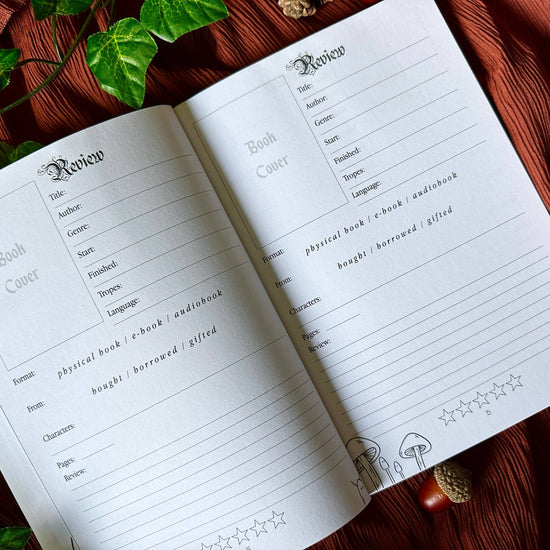 Review
Title:
Author:
Genre:
Start:
Finished:
Tropes:
Language:
Book
Cover
Format: physical book / e-book / audiobook
From: bought / borrowed / gifted
Characters:
Pages:
Review:
Review
Title:
Author:
Genre:
Start:
Finished:
Tropes:
Language:
Book
Cover
Format: physical book / e-book / audiobook
From: bought / borrowed / gifted
Characters:
Pages:
Review: